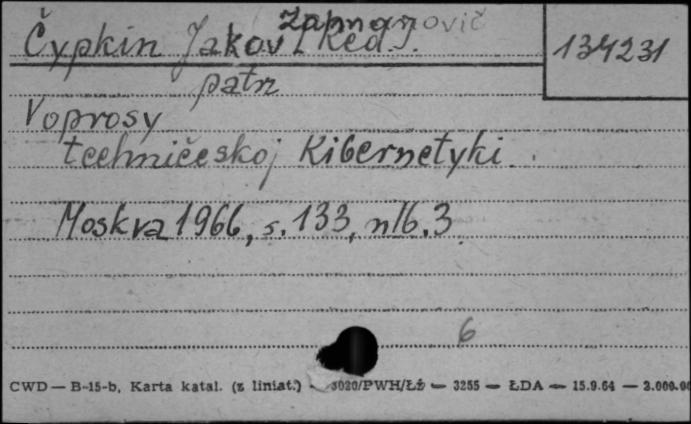 Zalmanovič
Čypkin Jakov [Red.].
134231
patrz
Voprosy
techničeskoj Kibernetyki.
Moskva 1966, s. 133, nlb. 3
6
CWD — B-15-b, Karta katal. (z liniat.) — 3020/PWH/Łź — 3255 — ŁDA — 15.9.64 — 2.000.00